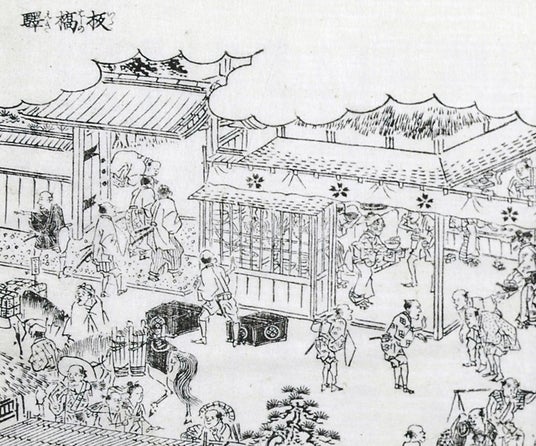 板橋驛